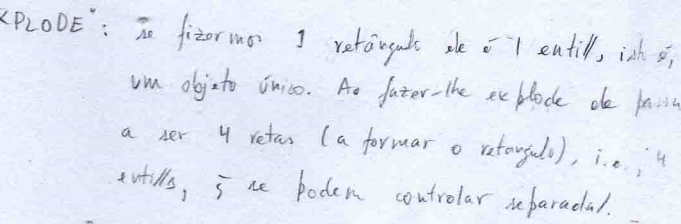 XPLODE": se fizermos 1 retângulo ele é 1 entid//, isto é,
um objeto único. Ao fazer-lhe explode ele passa
a ser 4 retas (a formar o retangulo), i.e., 4
entid//s, q̃ se podem controlar separada/.